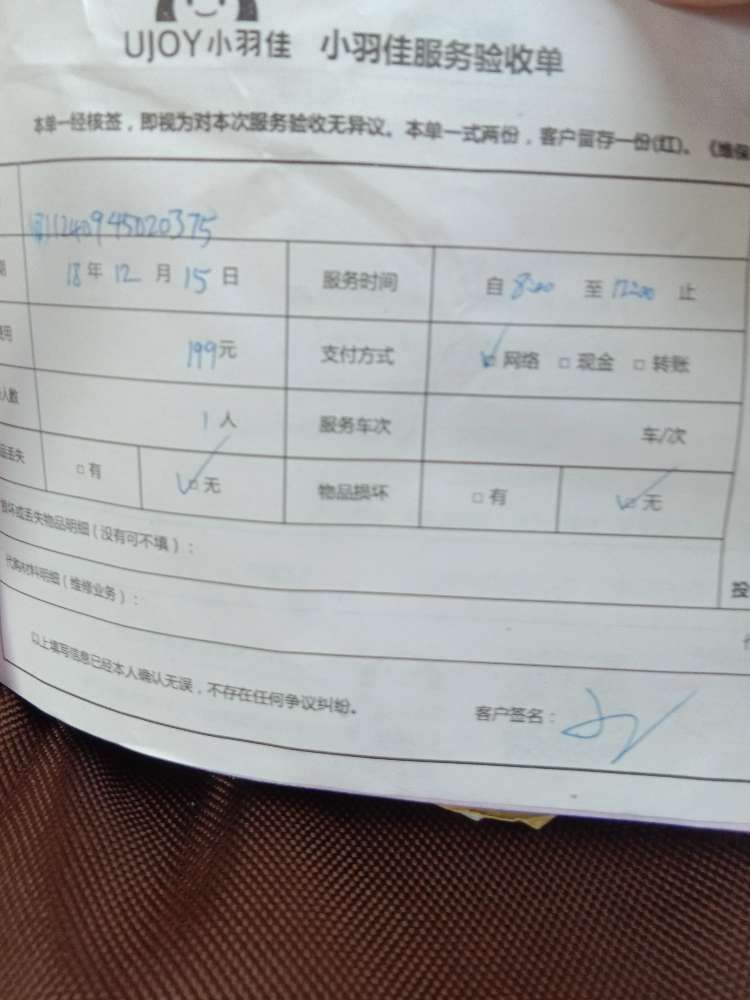 UJOY小羽佳 小羽佳服务验收单
本单一经核签，即视为对本次服务验收无异议。本单一式两份，客户留存一份(红)。《维保
1240945020375
期 18年12月15日 服务时间 自8:00至12:00止
费用 199元 支付方式 ☑网络 □现金 □转账
人数 1人 服务车次 车/次
品丢失 □有 ☑无 物品损坏 □有 ☑无
损坏或丢失物品明细（没有可不填）：
投
代购材料明细（维修业务）：
以上填写信息已经本人确认无误，不存在任何争议纠纷。 客户签名：